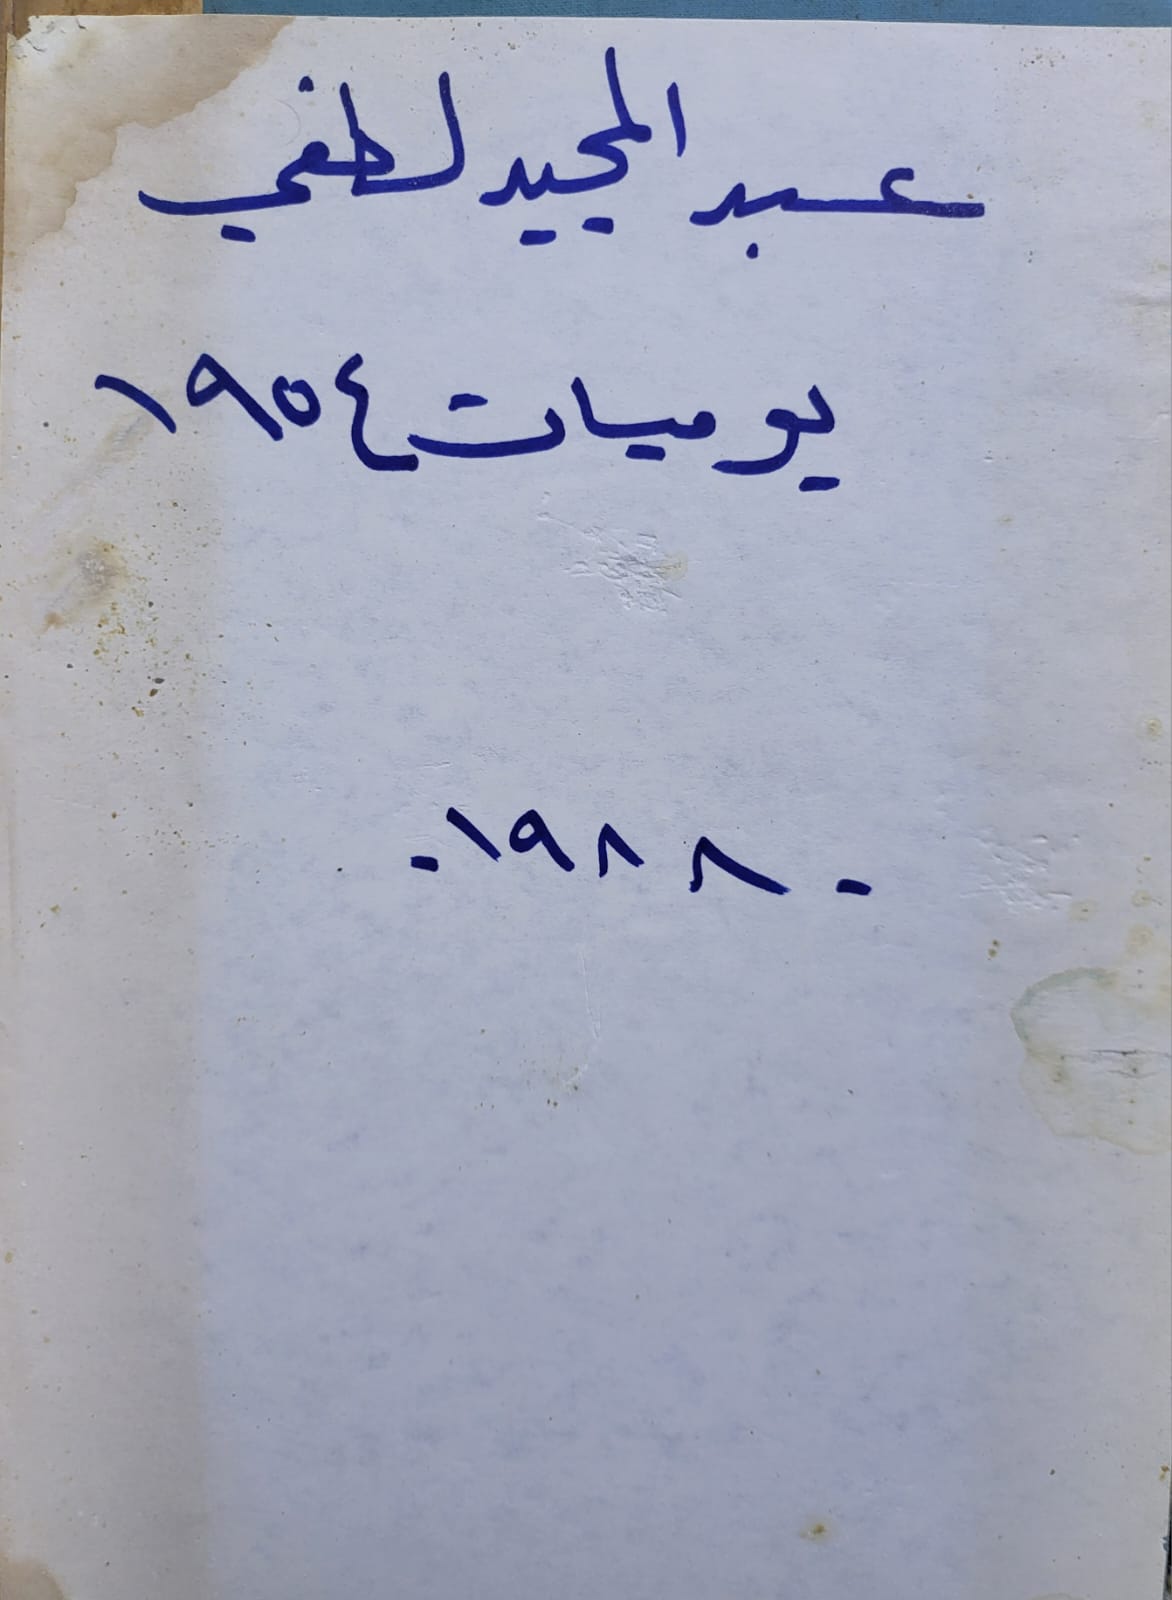 عبد المجيد لطفي
يوميات ١٩٥٤
- ١٩٨٨ -